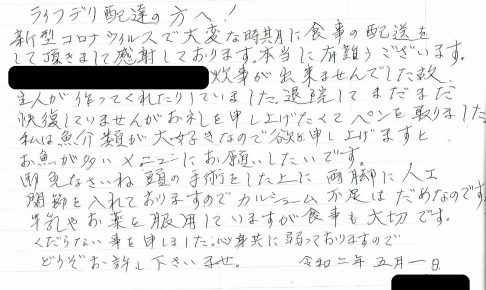 ライフデリ配達の方へ！
新型コロナウィルスで大変な時期に食事の配送を
して頂きまして感射しております。本当に有難うございます。
炊事が出来ませんでした故、
主人が作ってくれたりしていました。退院してまだまだ
快復していませんがお礼を申し上げたくてペンを取りました。
私は魚介類が大好きなので欲を申し上げますと
お魚が多いメニューにお願いしたいです。
なさいね頭の手術をした上に両脚に人工
関節を入れておりますのでカルシューム不足はだめなのです。
牛乳やお薬を服用していますが食事も大切です。
くだらない事を申しました。心身共に弱っておりますので
どうぞお許し下さいませ。 令和二年五月一日